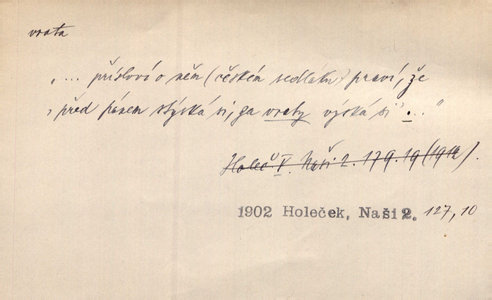 vrata
"... přísloví o něm (českém sedláku) praví, že
'před pánem stýská si, za vraty výská si' ..."
Holeč V. Naši 2. 179.19 (1912).
1902 Holeček, Naši 2. 127,10